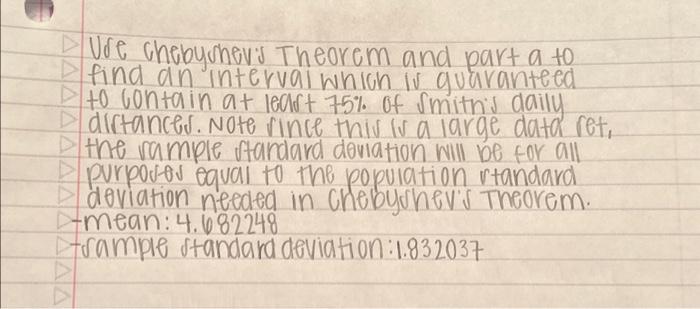 Use Chebychev's Theorem and part a to
find an interval which is guaranteed
to contain at least 75% of Smith's daily
distances. Note since this is a large data set,
the sample standard deviation will be for all
purposes equal to the population standard
deviation needed in Chebyshev's Theorem.
-mean: 4.682248
-sample standard deviation: 1.832037